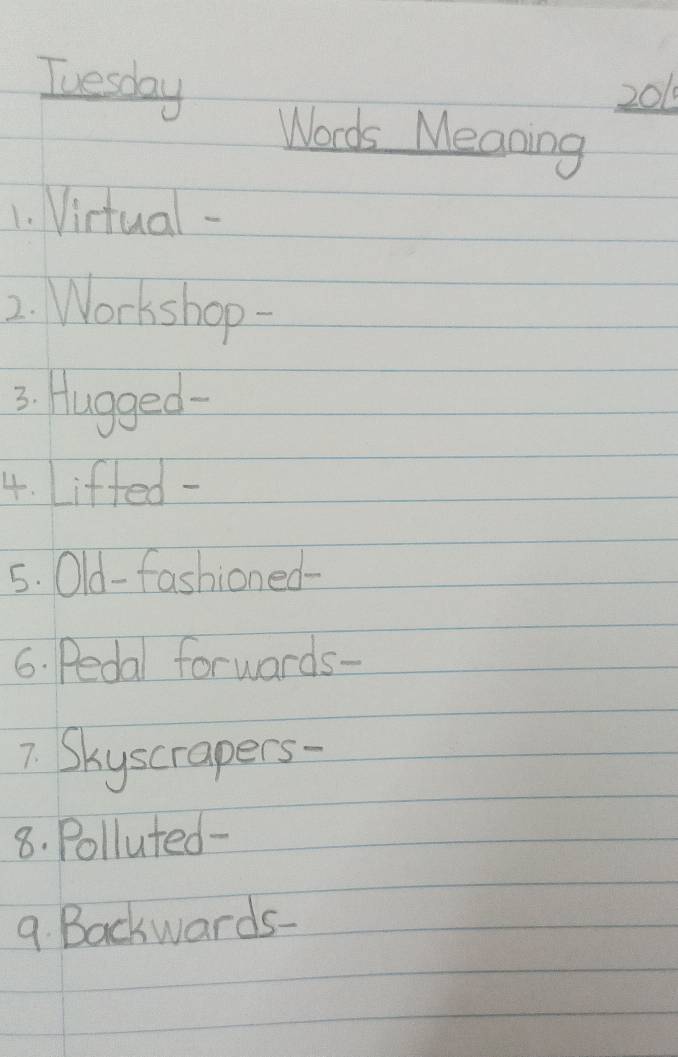 Tuesday
Words Meaning
1. Virtual -
2. Workshop -
3. Hugged -
4. Lifted -
5. Old-fashioned -
6. Pedal forwards -
7. Skyscrapers -
8. Polluted -
9. Backwards -